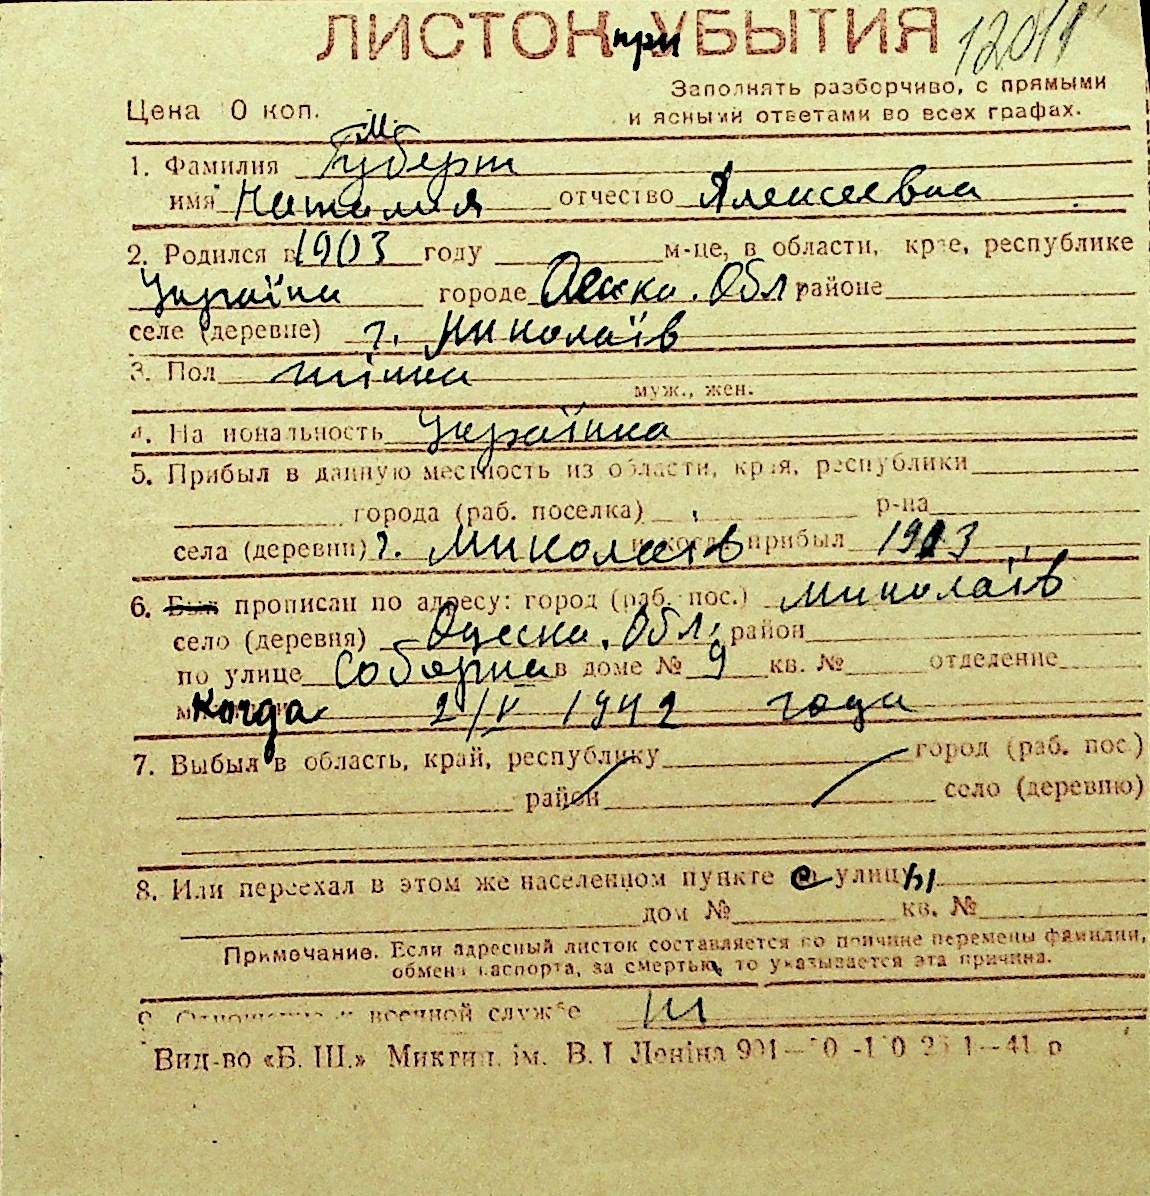 ЛИСТОК приУБЫТИЯ
Заполнять разборчиво, с прямыми
Цена 0 коп. и ясными ответами во всех графах.
1. Фамилия Губерт
имя Наталия отчество Алексеевна
2. Родился в 1903 году м-це, в области, крае, республике
Україна городе Обл районе
селе (деревне) г. Миколаїв
3. Пол жінка
муж., жен.
4. Национальность Українка
5. Прибыл в данную местность из области, края, республики
города (раб. поселка) р-на
села (деревни) г. Миколаїв и когда прибыл
6. Был прописан по адресу: город (раб. пос.) Миколаїв
село (деревня) Одеска. Обл. район
по улице Соборна в доме № 9 кв. № отделение
Когда 2/V 1942 года
7. Выбыл в область, край, республику город (раб. пос.)
район село (деревню)
8. Или переехал в этом же населенном пункте с улицы
дом № кв. №
Примечание. Если адресный листок составляется по причине перемены фамилии,
обмена паспорта, за смертью, то указывается эта причина.
9. Отношение к военной службе
Вид-во «Б. Ш.» Миктип. ім. В. І Леніна